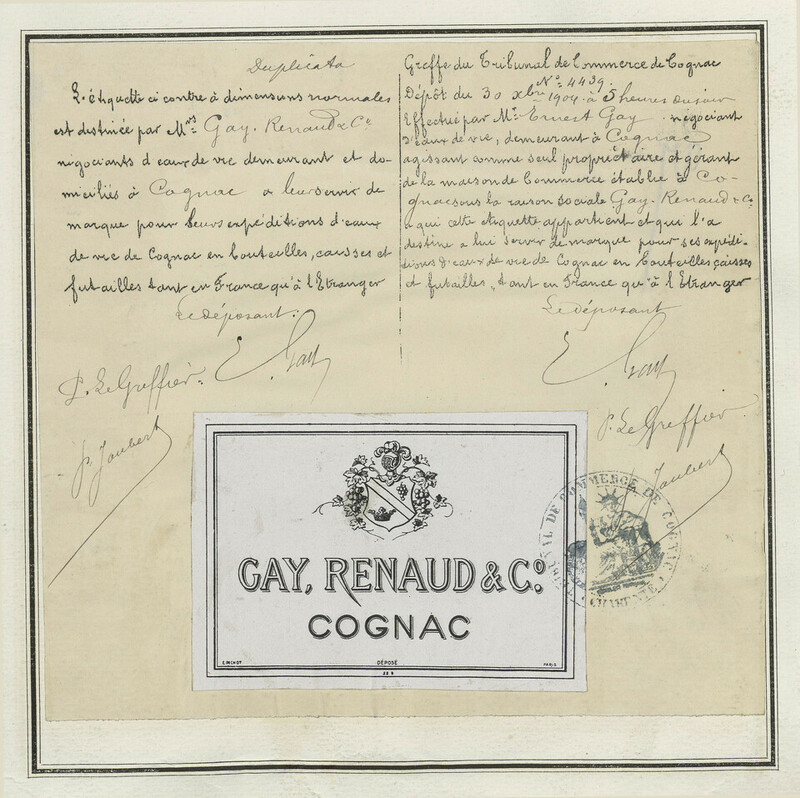 Duplicata
L'étiquette ci contre à dimensions normales
est destinée par Mrs Gay. Renaud & Ce
négociants d'eaux de vie demeurant et do-
miciliés à Cognac a leur servir de
marque pour leurs expéditions d'eaux
de vie de Cognac en bouteilles, caisses et
futailles tant en France qu'à l'Etranger
Le déposant.
E. Gay
P. Le Greffier.
P. Joubert
Greffe du Tribunal de Commerce de Cognac
No 4439.
Dépôt du 30 xbre 1904 à 5 heures du soir
Effectué par Mr Ernest Gay négociant
d'eaux de vie, demeurant à Cognac
agissant comme seul propriétaire et gérant
de la maison de Commerce établie à Co-
gnac sous la raison sociale Gay. Renaud & Ce
a qui cette etiquette appartient et qui l'a
destine a lui servir de marque pour ses expédi-
tions d'eaux de vie de Cognac en bouteilles caisses
et futailles, tant en France qu'à l'Etranger
Le déposant
E. Gay
P. Le Greffier
Joubert
GAY, RENAUD & Co.
COGNAC
DÉPOSÉ
PARIS
TRIBUNAL DE COMMERCE DE COGNAC
CHARENTE